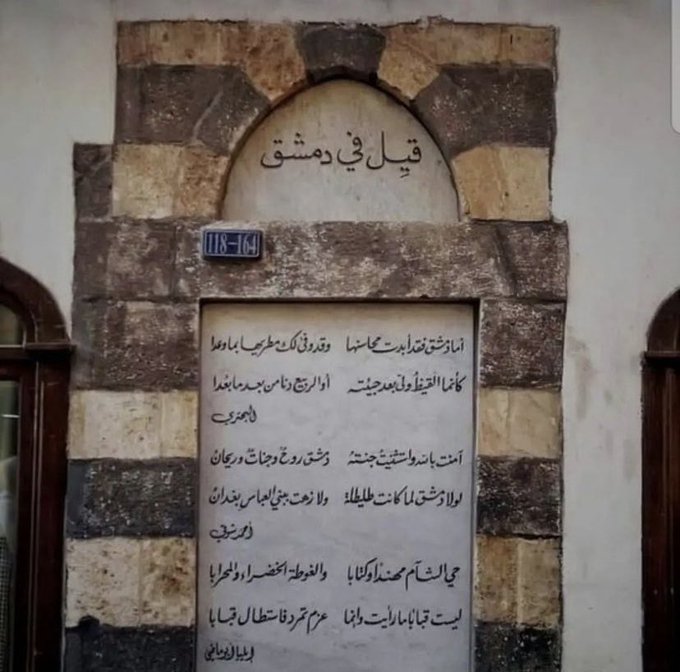 قيل في دمشق
118-164
أما دمشق فقد أبدت محاسنها وقد وفى لك مطريها بما وعدا
كأنما القيظُ ولى بعد جيئته أو الربيع دنا من بعد ما بعُدا
البحتري
آمنت بالله واستثنيتُ جنتهُ دمشق روحٌ وجناتٌ وريحانُ
لولا دمشق لما كانت طليطلة ولا زهت ببني العباس بغدانُ
أحمد شوقي
حي الشآم مهنداً وكتابا والغوطة الخضراء والمحرابا
ليست قباباً ما رأيت وإنما عزم تمرد فاستطال قبابا
إيليا أبو ماضي